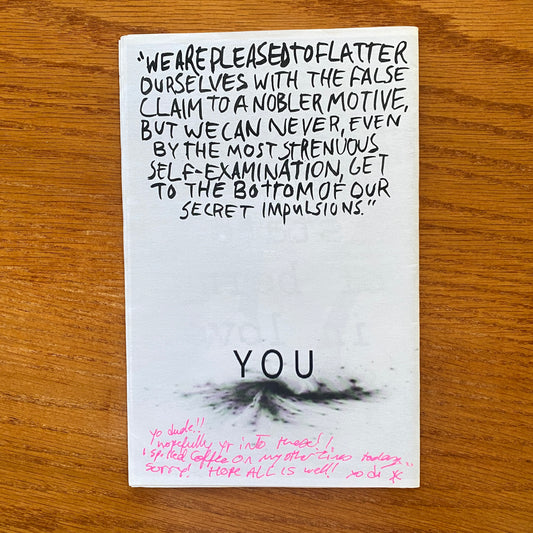 "WE ARE PLEASED TO FLATTER
OURSELVES WITH THE FALSE
CLAIM TO A NOBLER MOTIVE,
BUT WE CAN NEVER, EVEN
BY THE MOST STRENUOUS
SELF-EXAMINATION, GET
TO THE BOTTOM OF OUR
SECRET IMPULSIONS."
YOU
yo dude!!
hopefully yr into these!!
spilled coffee on my other zines today
sorry! HOPE ALL IS well! xo